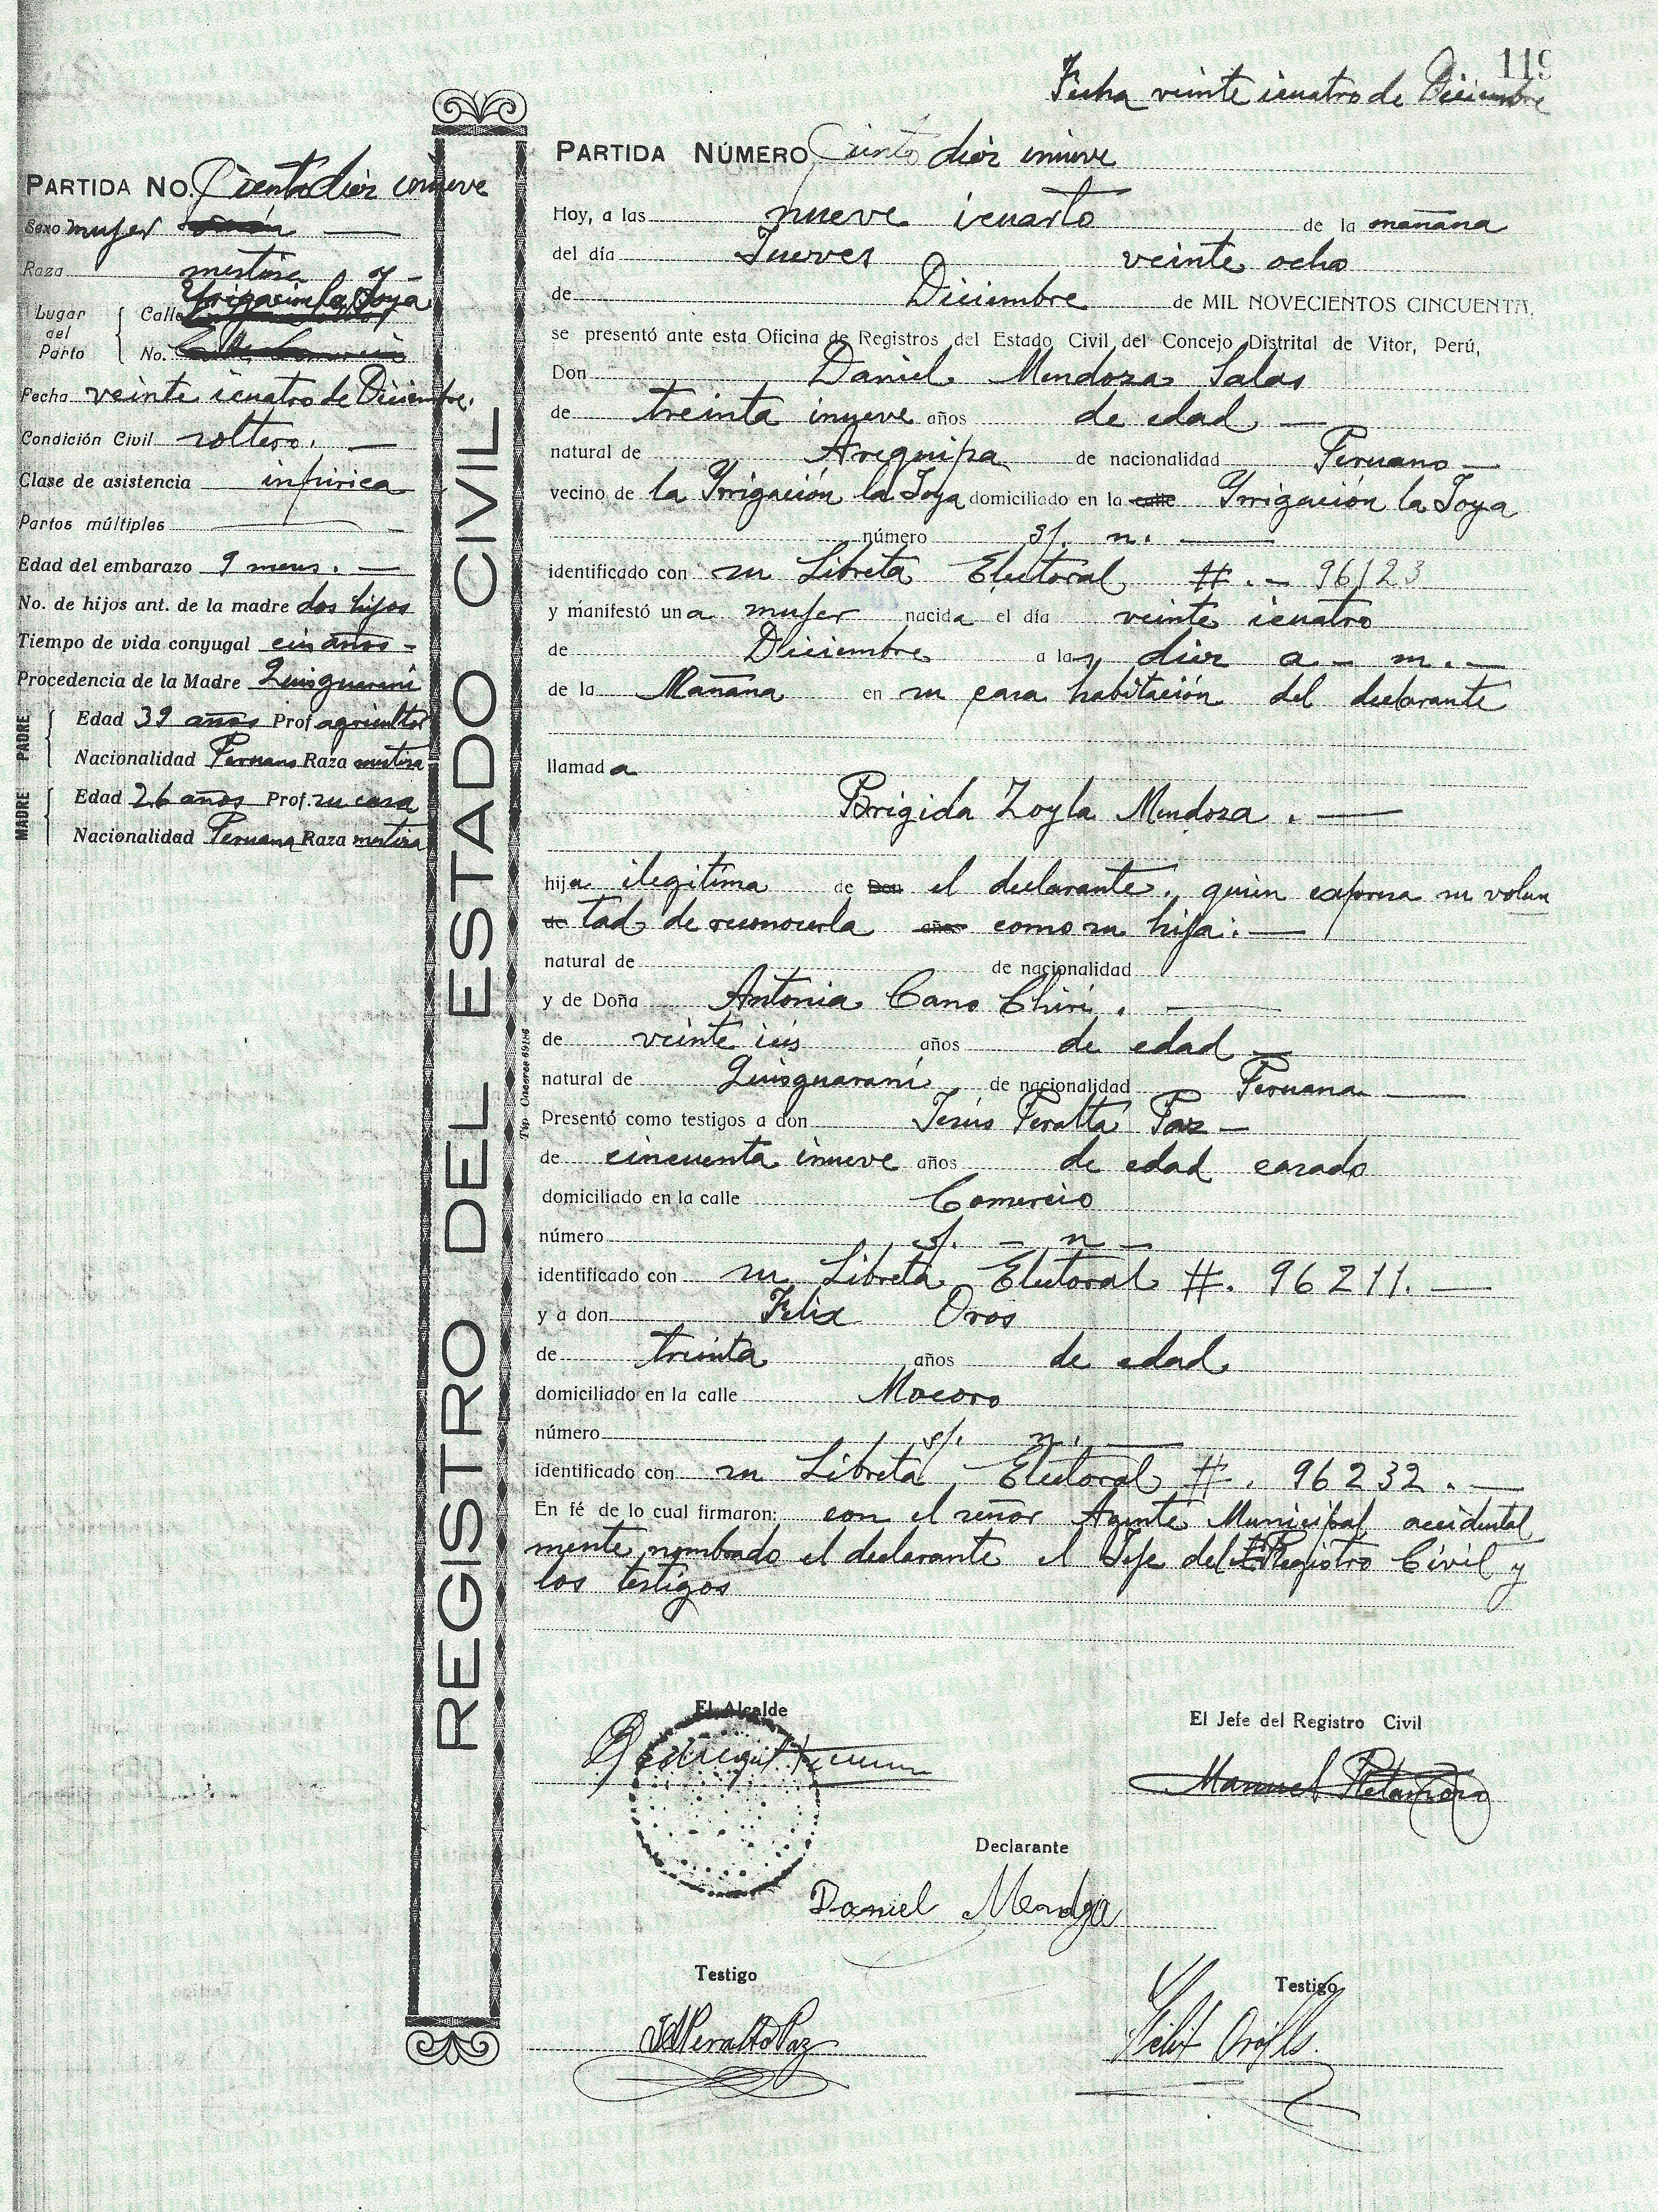 119
Fecha veinte icuatro de Diciembre
PARTIDA NÚMERO Ciento diez inueve
Hoy, a las nueve icuarto de la mañana
del día Jueves veinte ocho
de Diciembre de MIL NOVECIENTOS CINCUENTA,
se presentó ante esta Oficina de Registros del Estado Civil del Concejo Distrital de Vitor, Perú,
Don Daniel Mendoza Salas
de treinta inueve años de edad —
natural de Arequipa de nacionalidad Peruano —
vecino de la Yrrigación la Joya domiciliado en la calle Yrrigación la Joya
número s/. n. —
identificado con su Libreta Electoral #. – 96123
y manifestó una mujer nacida el día veinte icuatro
de Diciembre a las diez a – m. –
de la Mañana en su casa habitación del declarante
llamada
Brigida Zoyla Mendoza . —
hija ilegitima de Don el declarante, quien expresa su volun
de tad de reconocerla años como su hija. —
natural de de nacionalidad
y de Doña Antonia Cano Chiri . —
de veinte seis años de edad —
natural de Quisguarani de nacionalidad Peruana —
Presentó como testigos a don Jesús Peralta Paz —
de cincuenta inueve años de edad casado
domiciliado en la calle Comercio
número s/. – n –
identificado con su Libreta Electoral #. 96211. —
y a don Felix Oros
de treinta años de edad
domiciliado en la calle Mocoro
número s/. n. —
identificado con su Libreta Electoral #. 96232 . —
En fé de lo cual firmaron: con el señor Agente Municipal accidental
mente nombrado el declarante el Jefe del Registro Civil y
los testigos
El Alcalde
El Jefe del Registro Civil
Manuel
Declarante
Daniel Mendoza
Testigo
Peralta Paz
Testigo
PARTIDA NO. Ciento diez inueve
Sexo mujer —
Raza mestiza
Lugar del Parto
Calle Yrrigación la Joya
No.
Fecha veinte icuatro de Diciembre.
Condición Civil soltero. —
Clase de asistencia inpirica
Partos múltiples —
Edad del embarazo 9 meses. —
No. de hijos ant. de la madre dos hijos
Tiempo de vida conyugal años –
Procedencia de la Madre Quisguarani
PADRE
Edad 39 años Prof. agricultor
Nacionalidad Peruano Raza mestiza
MADRE
Edad 26 años Prof. su casa
Nacionalidad Peruana Raza mestiza
REGISTRO DEL ESTADO CIVIL
Tip. Caceres 69186